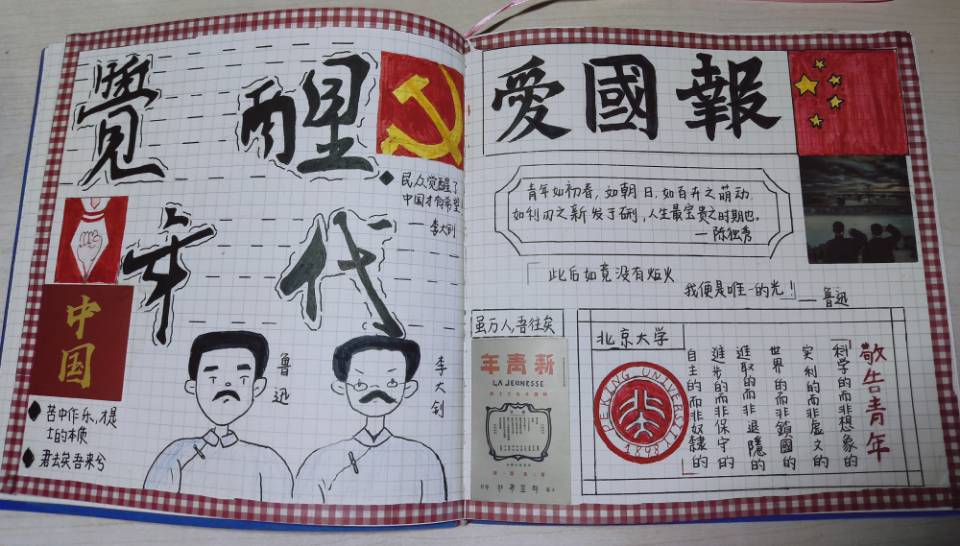 覺醒
年代
民众觉醒了
中国才有希望
— 李大钊
中国
鲁迅
李大钊
苦中作乐,才是
士的本质
君去矣吾来兮
愛國報
青年如初春,如朝日,如百卉之萌动,
如利刃之新发于硎,人生最宝贵之时期也。
—陈独秀
「此后如竟没有炬火
我便是唯一的光!——鲁迅
虽万人,吾往矣
新青年
LA JEUNESSE
北京大学
PEKING UNIVERSITY
1898
敬告青年
「科学的而非想象的
实利的而非虚文的
世界的而非鎖國的
進取的而非退隱的
進步的而非保守的
自主的而非奴隸的」